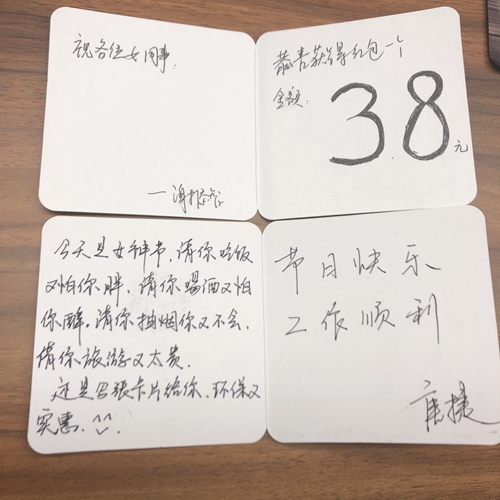 祝各位女同事:
恭喜获得红包一个
金额:
3.8元
今天是女神节,请你吃饭
又怕你胖,请你喝酒又怕
你醉,请你抽烟你又不会,
请你旅游又太贵.
还是写张卡片给你,环保又
实惠.^^.
节日快乐
工作顺利
唐捷